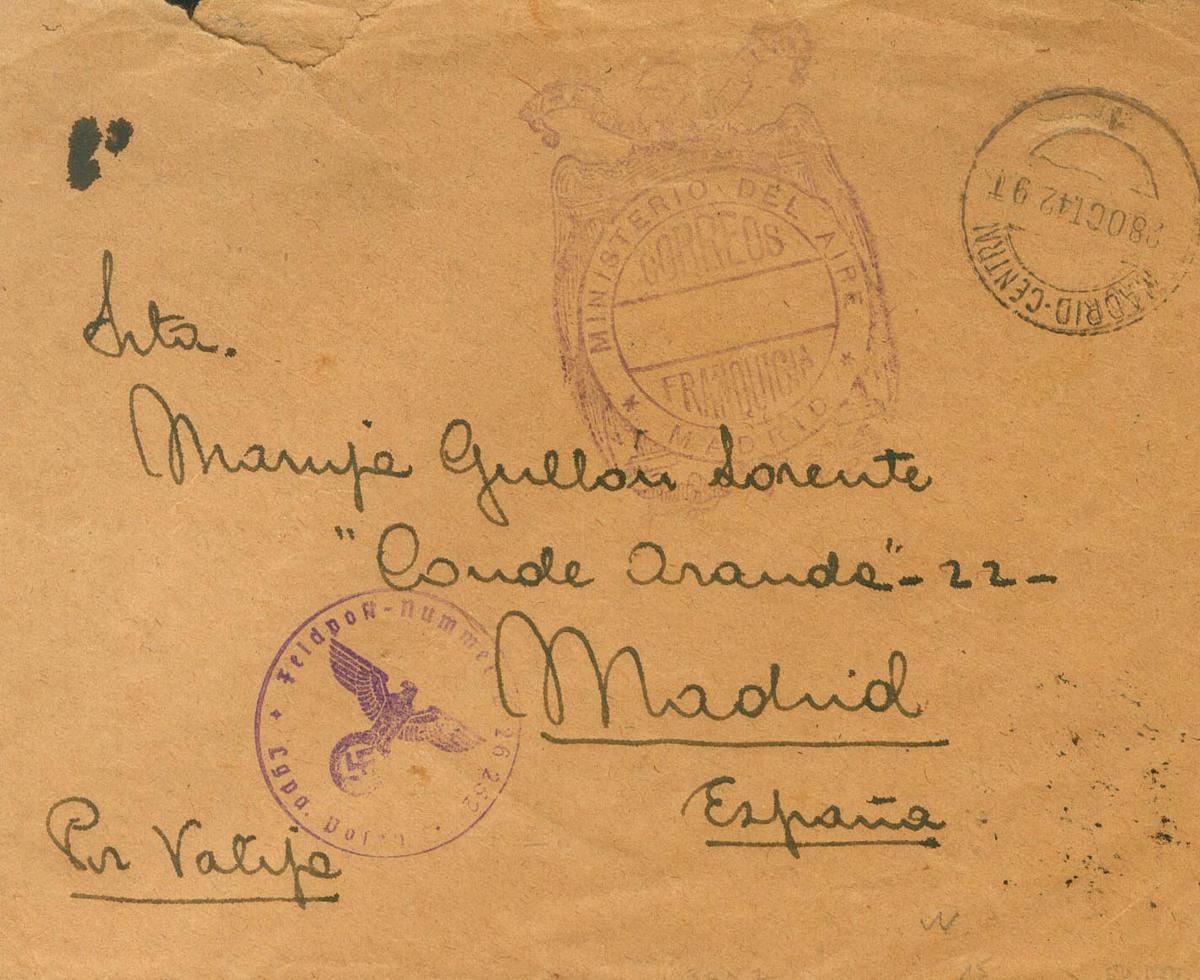 MINISTERIO DEL AIRE
CORREOS
FRANQUICIA
* MADRID *
MADRID-CENTRAL
28 OCT.42 9T
Srta.
Maruja Gullón Lorente
"Conde Aranda"-22-
Madrid
España
Feldpost-Nummer
26 232
Por Valija